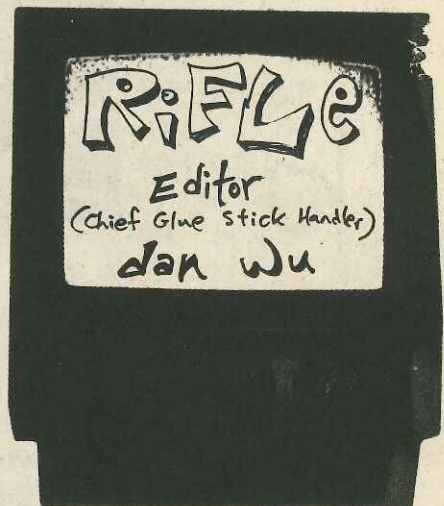 RiFLe
Editor
(Chief Glue Stick Handler)
dan wu